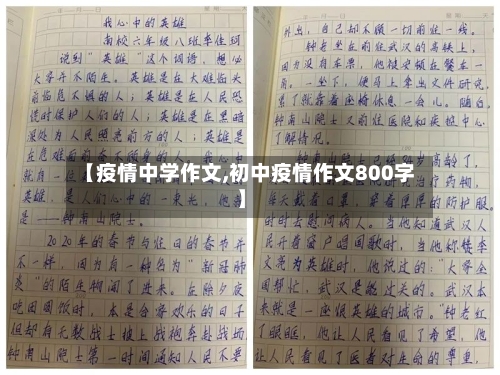 我心中的英雄
南校六年级八班李佳珂
说到“英雄”这个词语，想必
大家并不陌生。英雄是在大难临头
前临危不惧的人；英雄是在人民恐
慌时保护人们的人；英雄是在黑暗
深处为人民照亮前方的人；英雄是
在危难面前
就自身一
英雄，是人们心中的一束光，他
是——钟南山院士。
2020年的春节与往日的春节并
不一样，因为有一种名为“新冠肺
炎”的陌生物闯了进来。在除夕夜
吃团圆饭时，本是合家欢乐的日子
但却有无数战士披上战袍奔赴战场
钟南山院士第一时间通知人民不要
外出，自己却不顾一切前往一线。
钟老坐在前往武汉的高铁上，
因为没有车票，他被安顿在餐车一
角。一坐下，便马上拿出文件研究，
累了就靠着座椅休息一会儿。随后，
钟南山院士又前往医院和疾控中心
了解情况。
高龄了，
治疗药物，
每天戴着口罩，穿着厚厚的防护服。
时时去慰问病人。当他知道武汉人
民开着窗户唱国歌时，当他称赞李
文亮为英雄时，他说过的：“大家全
国帮忙，武汉是能过关的。武汉本
来就是一座很英雄的城市。”钟老红
了眼眶，他让人民看见了希望，他
让人民看见了医者对生命的尊重，
【疫情中学作文,初中疫情作文800字
】